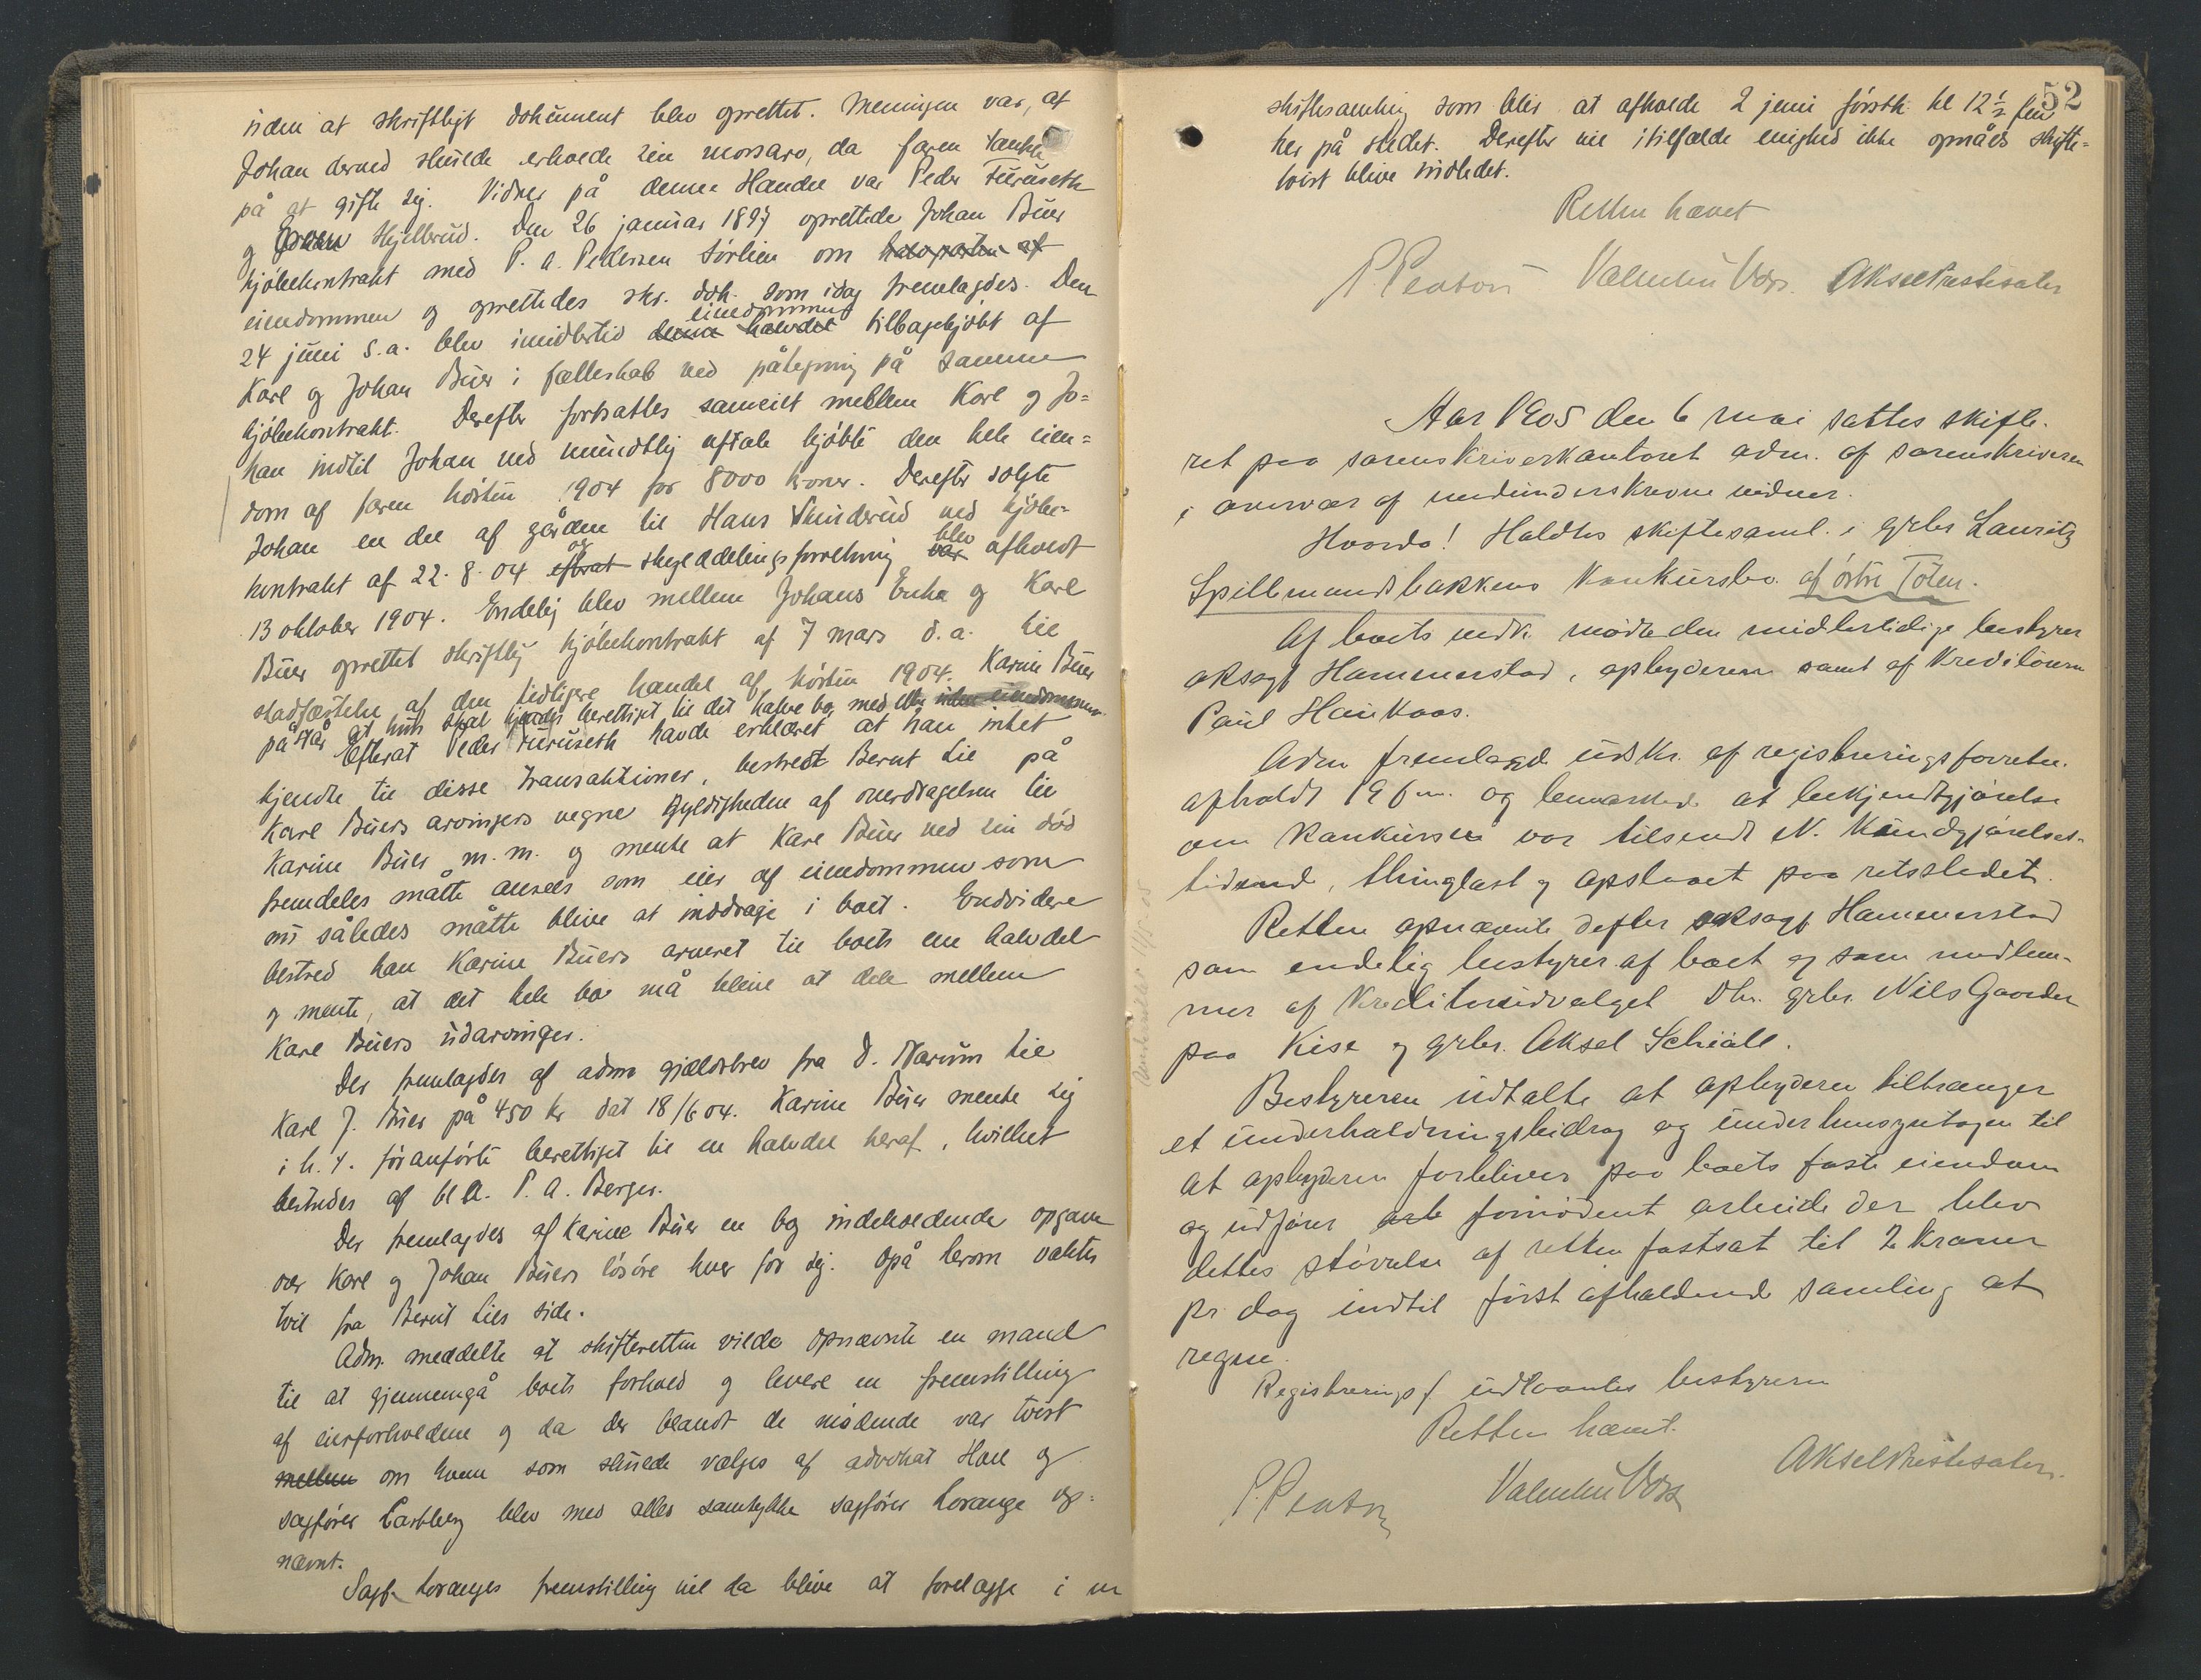 uden at skriftligt dokument blev oprettet. Meningen var, at
Johan derved skulde erholde sin morsarv, da faren tænkte
på at gifte sig. Vidner på denne Handel var Peder Furuseth
og Hjellerud. Den 26 januar 1897 oprettede Johan Buer
kjøbekontrakt med P. A. Pedersen Sørlien om halvparten af
eiendommen og oprettedes skr. dok. som idag fremlagdes. Den
eiendommen
24 juni s.a. blev imidlertid denne halvdel tilbagekjøbt af
Karl og Johan Buer i fælleskab ved påtegning på samme
kjøbekontrakt. Derefter fortsattes sameiet mellem Karl og Jo-
han indtil Johan ved mundtlig aftale kjøbte den hele eien-
dom af faren høsten 1904 for 8000 kroner. Derefter solgte
Johan en del af gården til Hans Skinderud ved kjøbe-
og blev
kontrakt af 22-8-04 efterat skylddelingsforretning var afholdt
13 oktober 1904. Endelig blev mellem Johans Enke og Karl
Buer oprettet skriftlig kjøbekontrakt af 7 mars d.a. til
stadfæstelse af den tidligere handel af høsten 1904. Karine Buer
påstår at hun skal kjendes berettiget til det halve bo med eiendommen.
Efterat Peder Furuseth havde erklæret at han intet
kjendte til disse transaktioner, bestred Bernt Lie på
Karl Buers arvingers vegne Gyldigheden af overdragelsen til
Karine Buer m.m. og mente at Karl Buer ved sin død
fremdeles måtte ansees som eier af eiendommen som
nu således måtte blive at inddrage i boet. Endvidere
bestred han Karine Buers arveret til boets ene halvdel
og mente, at det hele bo må blive at dele mellem
Karl Buers udarvinger.
Der fremlagdes af adm gjældsbrev fra D. Narum til
Karl J. Buer på 450 kr dat 18/6 04. Karine Buer mente sig
i h. t. foranførte berettiget til en halvdel heraf, hvilket
bestredes af bl A. P. A. Berger.
Der fremlagdes af Karine Buer en bog indeholdende opgave
over Karl og Johan Buers løsøre hver for sig. Også herom vaktes
tvil fra Bernt Lies side.
Adm. meddelte at skifteretten vilde opnævnte en mand
til at gjennemgå boets forhold og levere en fremstilling
af eierforholdene og da der blandt de mødende var tvist
mellem om hvem som skulde vælges af advokat Hoel og
sagfører Carlberg blev med alles samtykke sagfører Lorange op-
nævnt.
Sagf. Loranges fremstilling vil da blive at forelægge i en
52
skiftesamling som blir at afholde 2 juni førstk. kl 12 1/2 em
her på stedet. Derefter vil i tilfælde enighed ikke opnåes skifte-
tvist blive indledet.
Retten hævet
P. Penton Valentin Voss. Aksel Præstesæter
Aar 1905 den 6 mai sattes skifte-
ret paa sorenskriverkontoret adm. af sorenskriveren
i overvær af medunderskrevne vidner.
Hvorda! Holdtes skiftesaml. i grbr Lauritz
Spillmandsbakkens konkursbo af østre Toten.
Af boets vedk. mødte den midlertidige bestyrer
oksagf Hammerstad, opbyderen samt af kreditorerne
Paul Haukaas.
Adm fremlagde udskr. af registreringsforretn.
afholdt 19 f.m. og bemærkede at bekjendtgjørelse
om konkursen var tilsendt N. Kundgjørelses-
tidende, thinglæst og opslaaet paa retsstedet.
Retten opnævnte defter oksagf Hammerstad
som endelig bestyrer af boet og som medlem-
mer af kreditorudvalget Dhr. grbr. Nils Gaarder
paa Kise og grbr. Aksel Schiøll.
Bestyreren udtalte at opbyderen tiltrænger
et underholdningsbidrag og under hensyntagen til
at opbyderen forbliver paa boets faste eiendom
og udfører arb fornødent arbeide der blev
dettes størrelse af retten fastsat til 2 kroner
pr. dag indtil først afholdende samling at
regne.
Registreringsf. udlaantes bestyreren
Retten hævet.
P. Penton Valentin Voss Aksel Præstesæter.